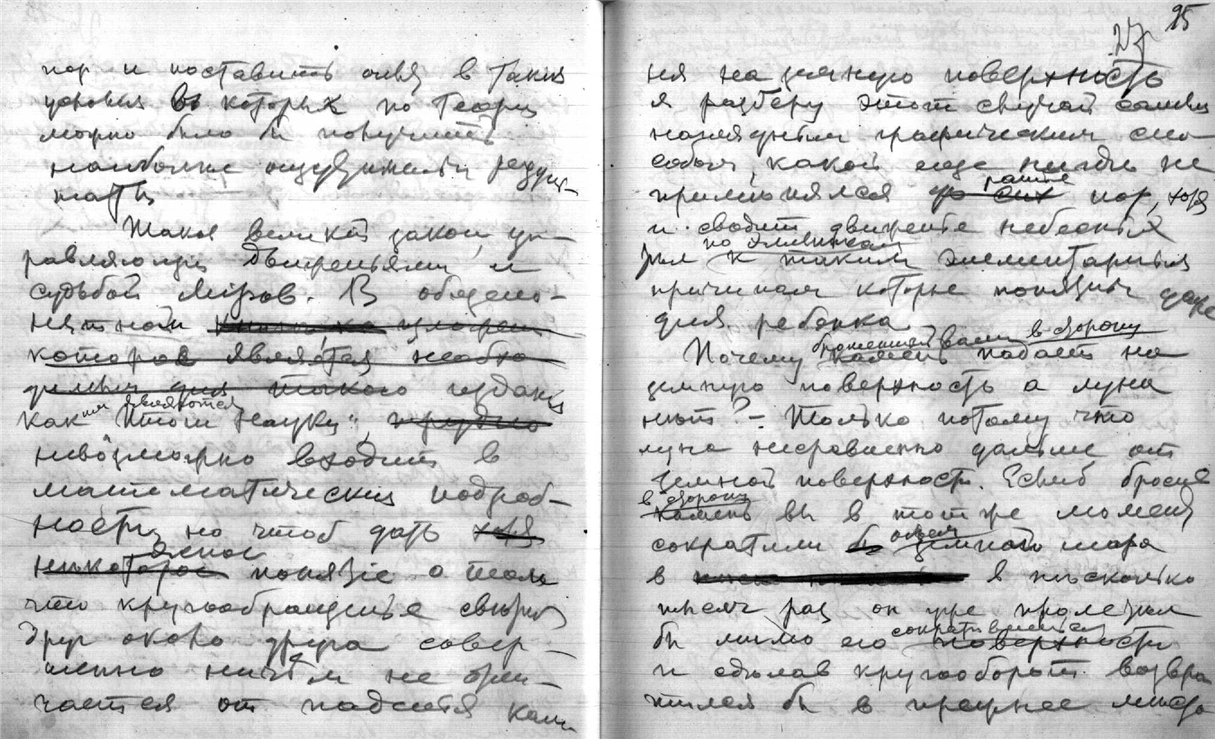 пор и поставить опыт в такия
условия въ которых по теории
можно было б получить
наиболее ощутительн резуль-
таты
Таков великий закон, уп-
равляющий движеньями и
судьбой міров. В общепо-
нятном книжка изложен
которое является необхо
как "Итоги Науки",
невозможно входить в
математические подроб-
ности, но чтоб дать хотя
некоторое ясное понятіе о том
что кругообращенье светил
друг около друга совер-
шенно ничем не отли-
чается от паденья кам
25
27
ня на земную поверхность
я разберу этот случай самым
наглядным графическим спо-
собом, какой еще нигде не
применялся до сих ранее пор, хотя
и сводит движенье небесных
по эллипсам
тел к таким элементарным
причинам которые понятны даже
для ребенка
брошенный вами в сторону
Почему камень падает на
земную поверхность а луна
нет? — Только потому что
луна несравненно дальше от
земной поверхност. Еслиб бросив
в сторону
камень вы в тот же момент
сократили б объем земного шара
в в несколько
тысяч раз он уже пролетел
сократившейся
бы мимо его поверхности
и сделав кругооборот возвра
тился бы в прежнее место